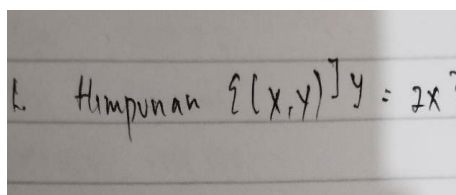 1. Himpunan {(x,y)] y = 2x